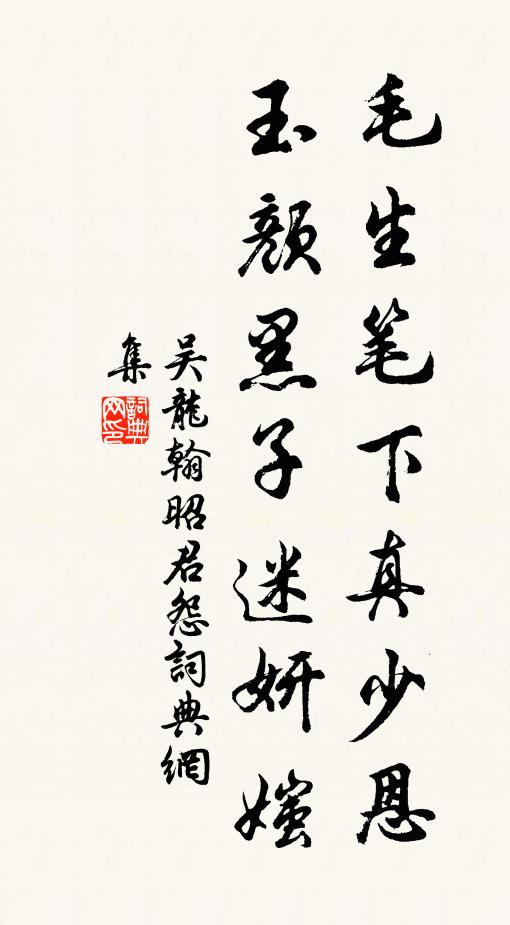 毛生笔下真少恩
玉颜黑子迷妍媸
吴龍翰昭君怨詞典網
集
詞典
网印